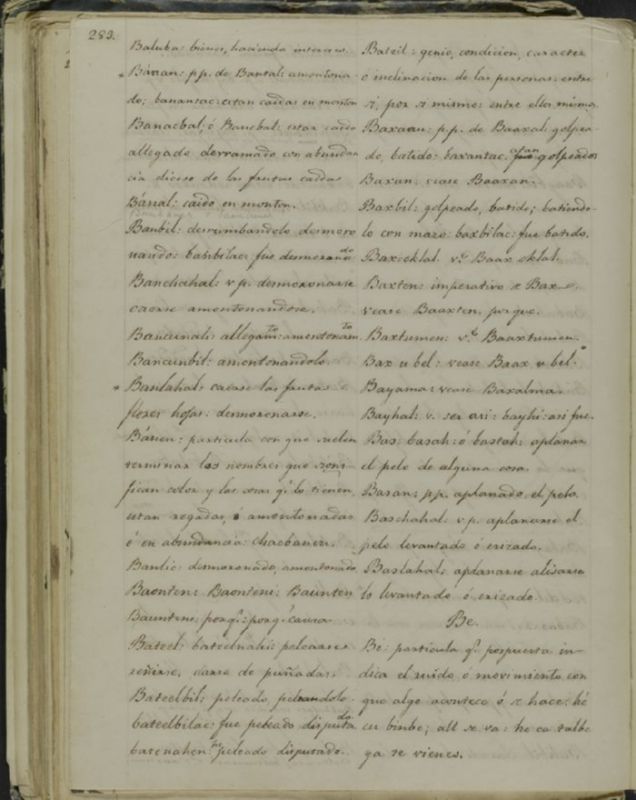 283.
Baluba: bienes, hacienda intereses.
* Bánan: pp. de Bantal: amontona-
do; banantac: estan caidas en monton
Banacbal, ó Banebal: estar caido
allegado derramado con abundan
cia dicese de las frutas caidas
Bánal: caido en monton.
Banbil: derrumbandolo desmoro
nando: banbilac: fue desmoronado
Banchahal: v p. desmoronarse
caerse amontonandose.
Bancunah: allegamto: amontonamto
Bancunbil: amontonandolo.
* Banlahal: caerse las frutas
flores hojas: desmoronarse.
Bánen: particula con que suelen
terminar los nombres que signi
fican color y las cosas qe lo tienen
estan regadas, ó amontonadas
ó en abundancia: chacbanen.
Banlic: desmoronado, amontonado
Baonten: Baonteni: Baunten
Baunteni, porqe: porqe causa
Bateel: bateelnahi: pelearse
reñirse, darse de puñadas.
Bateelbil: peleado, peleandolo
bateelbilac: fue peleado disputado
batenahen: peleado disputado.
Batzil: genio, condicion, caracter
ó inclinacion de las personas: entre
si, por si mismo: entre ella misma
Baxaan: pp. de Baaxal: golpea
do, batido: baxantac estan golpeados
Baxan: vease Baaxan.
Baxbil: golpeado, batido; batiendo-
lo con mazo: baxbilac: fue batido.
Bax oklal. ve Baax oklal.
Baxten: imperativo
vease Baaxten, porque.
Baxtumen: ve Baaxtumen.
Bax u bel: vease Baax u bel.
Bayama: vease Baxalma.
Bayhal: v. ser asi: bayhi: asi fue.
Bas: basah: ó bastah: aplanar
el pelo de alguna cosa.
Basan: pp. aplanado el pelo
Baschahal: v.p. aplanarse el
pelo levantado ó erizado.
Baslahal: aplanarse alisarse
lo levantado ó erizado.
Be.
Bé: particula qe pospuesta in-
dica el ruido, ó movimiento con
que algo acontece ó se hace: hé
cu binbe; alli se va: he ca talbe
ya se vienes.